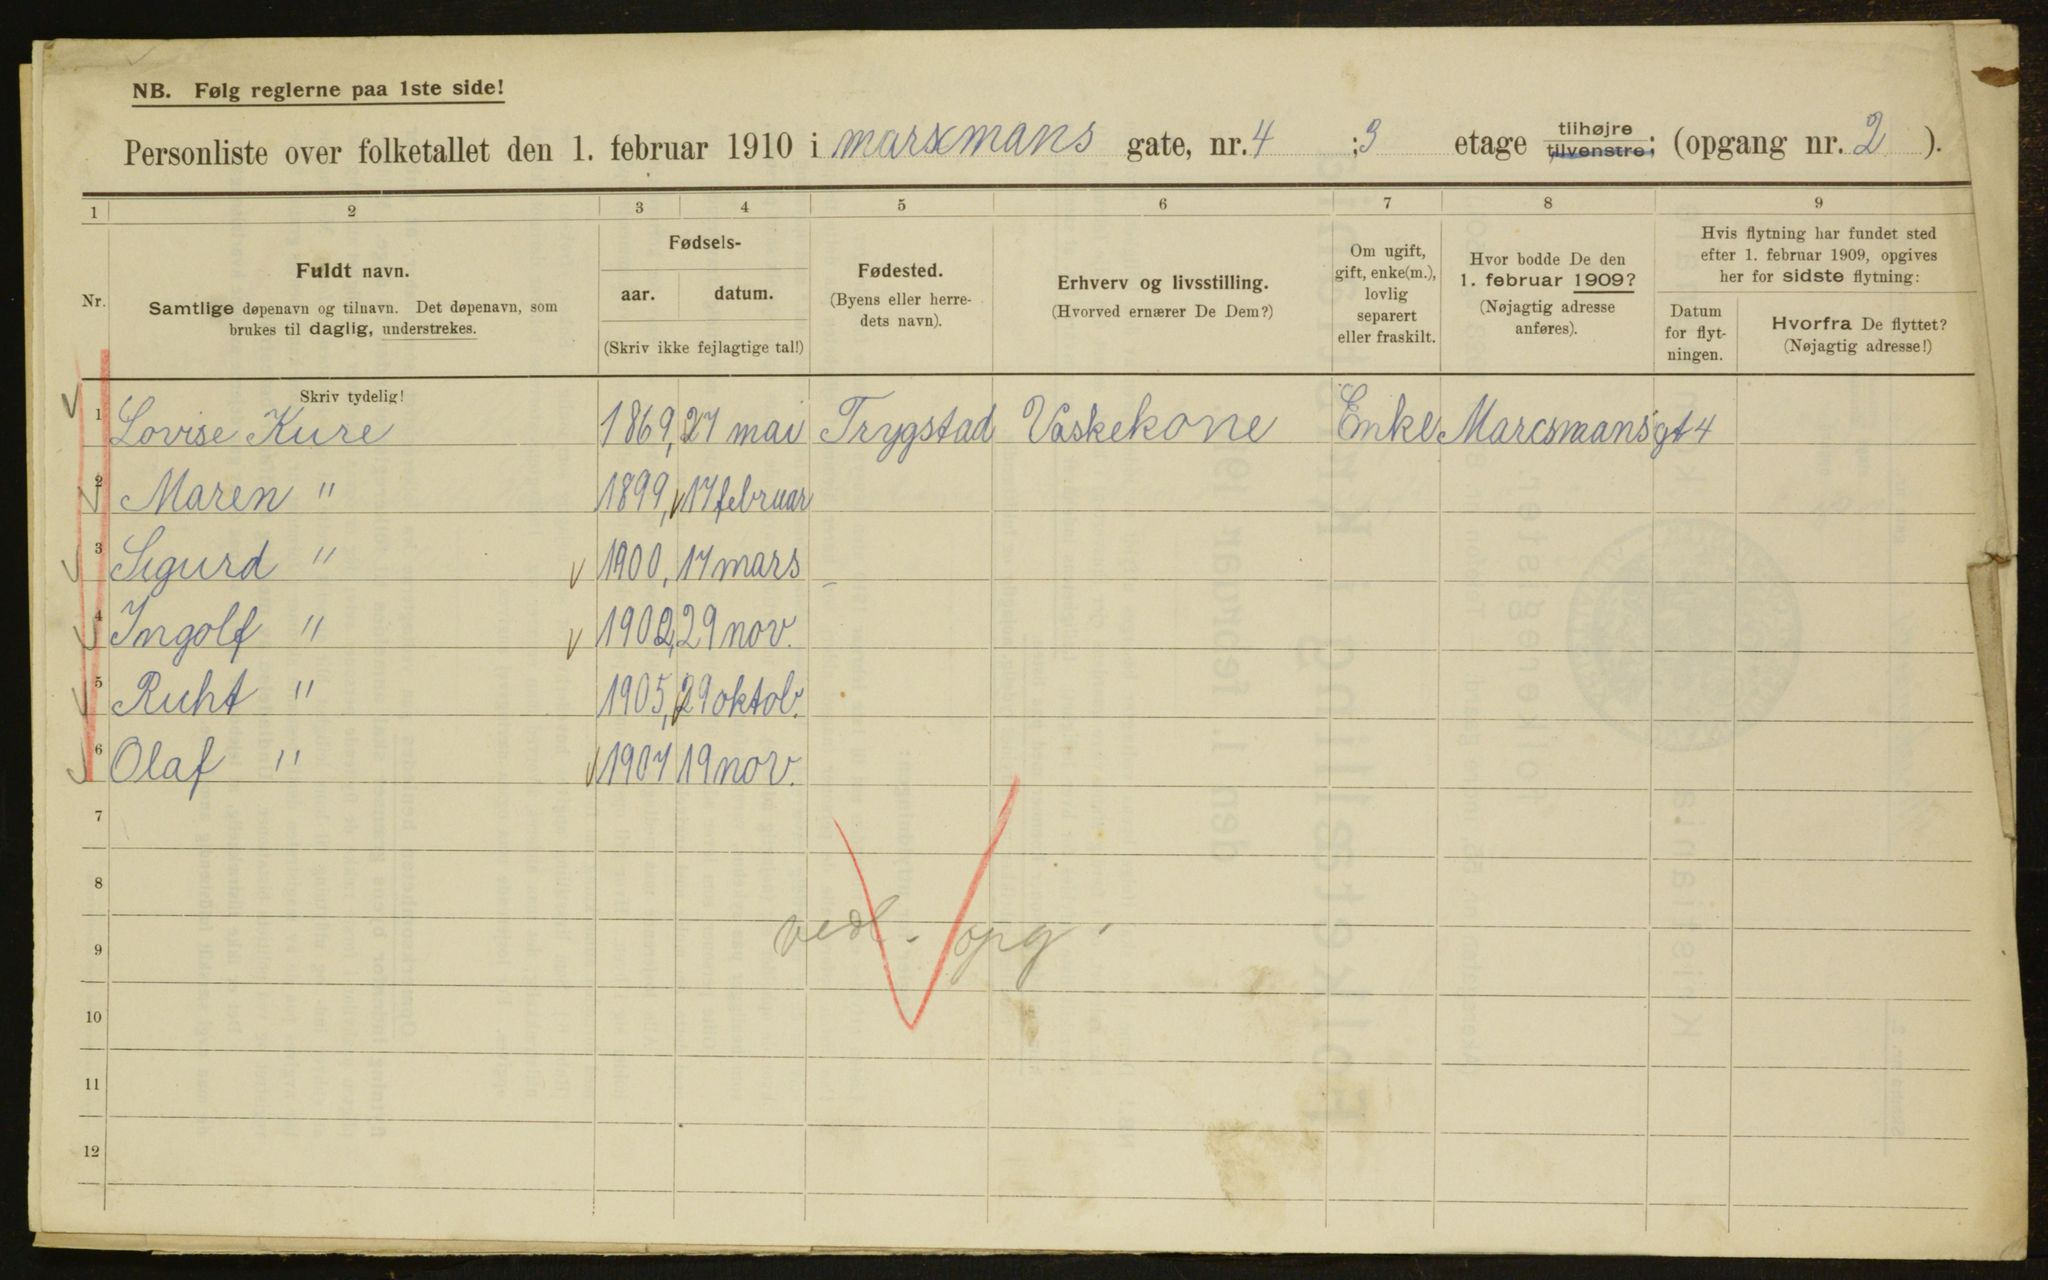 NB. Følg reglerne paa 1ste side!
Personliste over folketallet den 1. februar 1910 i marxmans gate, nr. 4 ; 3 etage tilhøjre tilvenstre; (opgang nr. 2 ).
1 2 3 4 5 6 7 8 9
Nr.
Fuldt navn.
Samtlige døpenavn og tilnavn. Det døpenavn, som
brukes til daglig, understrekes.
Fødsels-
aar. datum.
(Skriv ikke fejlagtige tal!)
Fødested.
(Byens eller herre-
dets navn).
Erhverv og livsstilling.
(Hvorved ernærer De Dem?)
Om ugift,
gift, enke(m.),
lovlig
separert
eller fraskilt.
Hvor bodde De den
1. februar 1909?
(Nøjagtig adresse
anføres).
Hvis flytning har fundet sted
efter 1. februar 1909, opgives
her for sidste flytning:
Datum
for flyt-
ningen.
Hvorfra De flyttet?
(Nøjagtig adresse!)
Skriv tydelig!
1 Lovise Kure 1869, 27 mai Trygstad Vaskekone Enke Marcsmansgt 4
2 Maren " 1899, 17 februar
3 Sigurd " 1900, 17 mars
4 Ingolf " 1902, 29 nov.
5 Ruht " 1905, 29 oktob.
6 Olaf " 1907 19 nov.
7
8
vedl. opg.
9
10
11
12